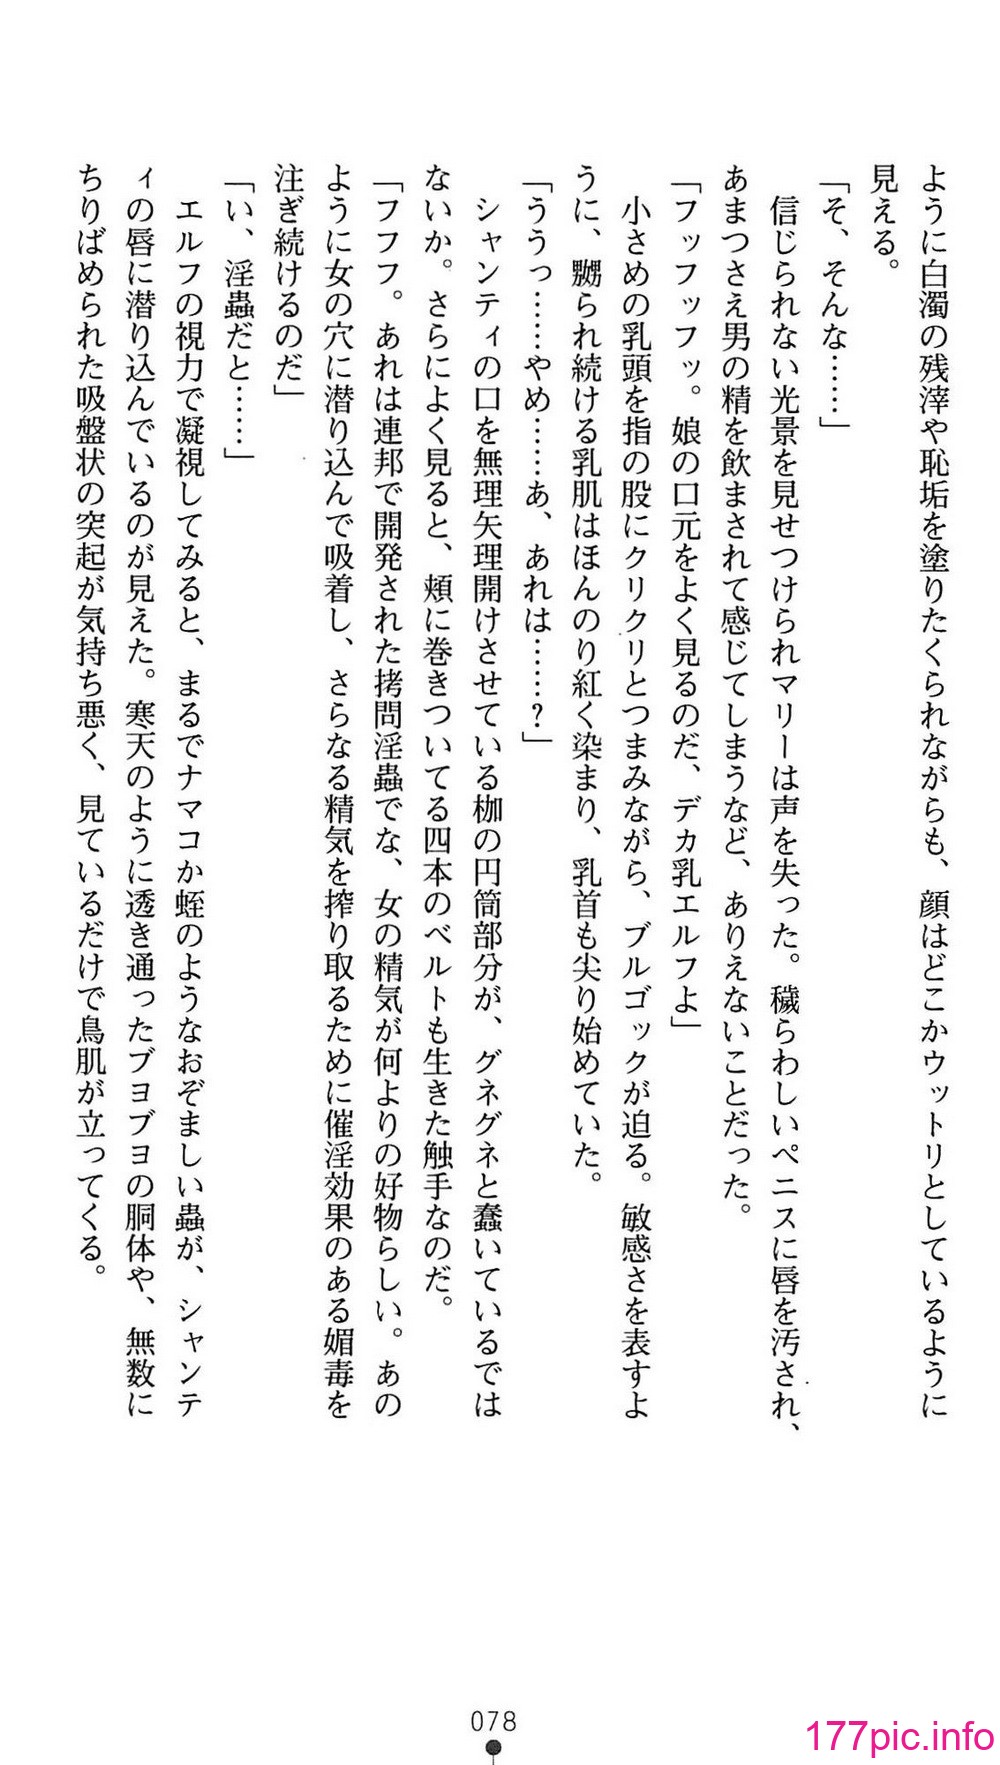 ように白濁の残滓や恥垢を塗りたくられながらも、顔はどこかウットリとしているように
見える。
「そ、そんな……」
　信じられない光景を見せつけられマリーは声を失った。穢らわしいペニスに唇を汚され、
あまつさえ男の精を飲まされて感じてしまうなど、ありえないことだった。
「フッフッフッ。娘の口元をよく見るのだ、デカ乳エルフよ」
　小さめの乳頭を指の股にクリクリとつまみながら、ブルゴックが迫る。敏感さを表すよ
うに、嬲られ続ける乳肌はほんのり紅く染まり、乳首も尖り始めていた。
「ううっ……やめ……あ、あれは……？」
　シャンティの口を無理矢理開けさせている枷の円筒部分が、グネグネと蠢いているでは
ないか。さらによく見ると、頬に巻きついてる四本のベルトも生きた触手なのだ。
「フフフ。あれは連邦で開発された拷問淫蟲でな、女の精気が何よりの好物らしい。あの
ように女の穴に潜り込んで吸着し、さらなる精気を搾り取るために催淫効果のある媚毒を
注ぎ続けるのだ」
「い、淫蟲だと……」
　エルフの視力で凝視してみると、まるでナマコか蛭のようなおぞましい蟲が、シャンテ
ィの唇に潜り込んでいるのが見えた。寒天のように透き通ったブヨブヨの胴体や、無数に
ちりばめられた吸盤状の突起が気持ち悪く、見ているだけで鳥肌が立ってくる。
078
177pic.info